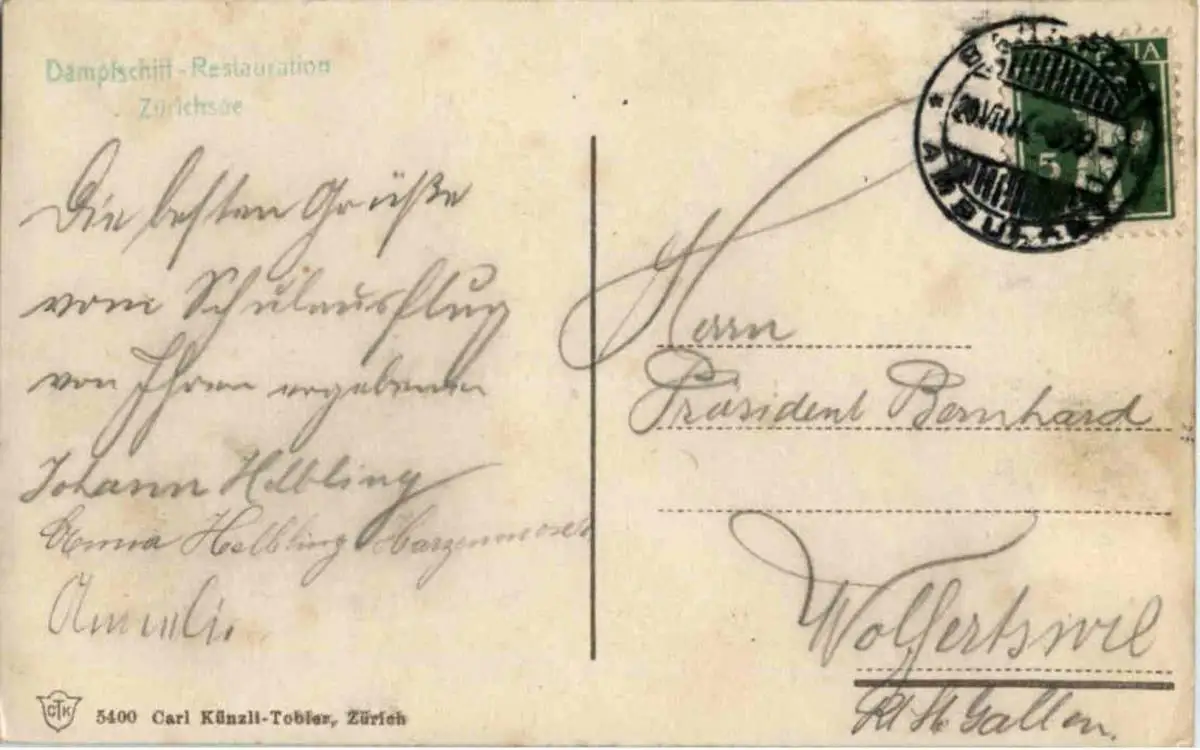 Dampfschiff-Restauration
Zürichsee
Die besten Grüße
vom Schulausflug
von Ihrem ergebenen
Johann Helbling
Emma Helbling Harzenmoser
HELVETIA
5
20.VII.14
AMBULANT
Herrn
Präsident Bernhard
Wolfertswil
Kt. St. Gallen.
CTK
5400 Carl Künzli-Tobler, Zürich